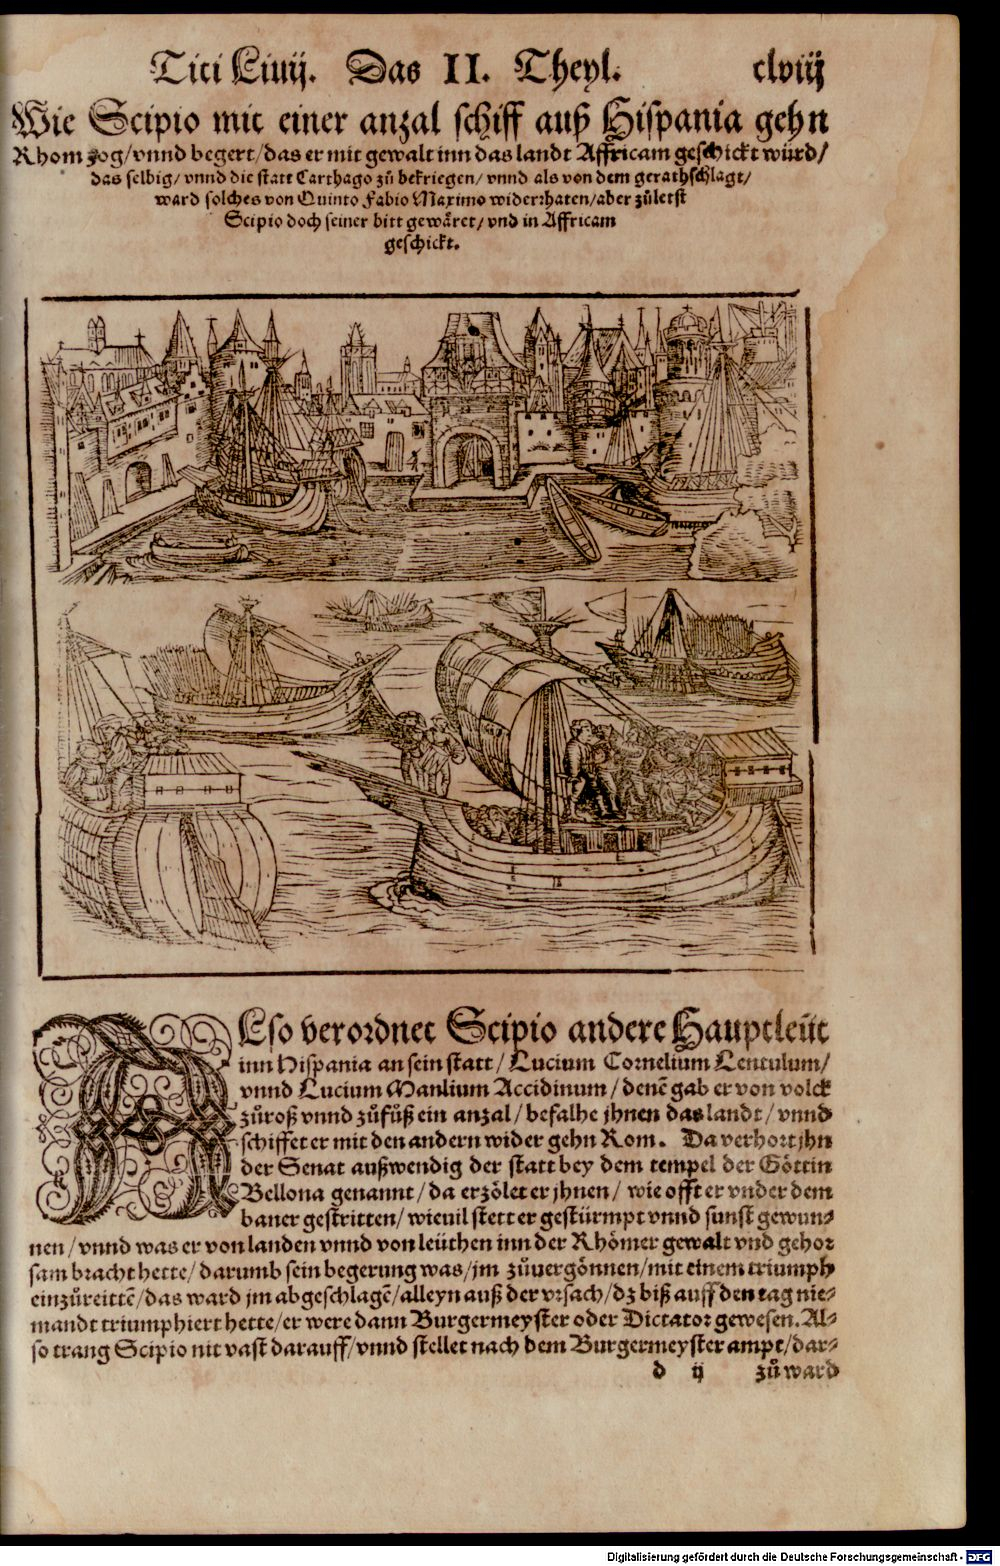 Titi Liuij. Das II. Theyl. clviij
Wie Scipio mit einer anzal schiff auß Hispania gehn
Rhom zog/vnnd begert/das er mit gewalt inn das landt Affricam geschickt würd/
das selbig/vnnd die statt Carthago zů bekriegen/vnnd als von dem gerathschlagt/
ward solches von Quinto Fabio Maximo widerrhaten/aber zůletst
Scipio doch seiner bitt gewäret/vnd in Affricam
geschickt.
ALso verordnet Scipio andere Hauptleüt
inn Hispania an sein statt/Lucium Cornelium Lentulum/
vnnd Lucium Manlium Accidinum/denē gab er von volck
zůroß vnnd zůfůß ein anzal/befalhe jhnen das landt/vnnd
schiffet er mit den andern wider gehn Rom. Da verhort jhn
der Senat außwendig der statt bey dem tempel der Göttin
Bellona genannt/da erzölet er jhnen/wie offt er vnder dem
baner gestritten/wieuil stett er gestürmpt vnnd sunst gewun⸗
nen/vnnd was er von landen vnnd von leüthen inn der Rhömer gewalt vnd gehor
sam bracht hette/darumb sein begerung was/jm zůuergönnen/mit einem triumph
einzůreittē/das ward jm abgeschlagē/alleyn auß der vrsach/dz biß auff den tag nie⸗
mandt triumphiert hette/er were dann Burgermeyster oder Dictator gewesen. Al⸗
so trang Scipio nit vast darauff/vnnd stellet nach dem Burgermeyster ampt/dar⸗
d ij zů ward
Digitalisierung gefördert durch die Deutsche Forschungsgemeinschaft - DFG